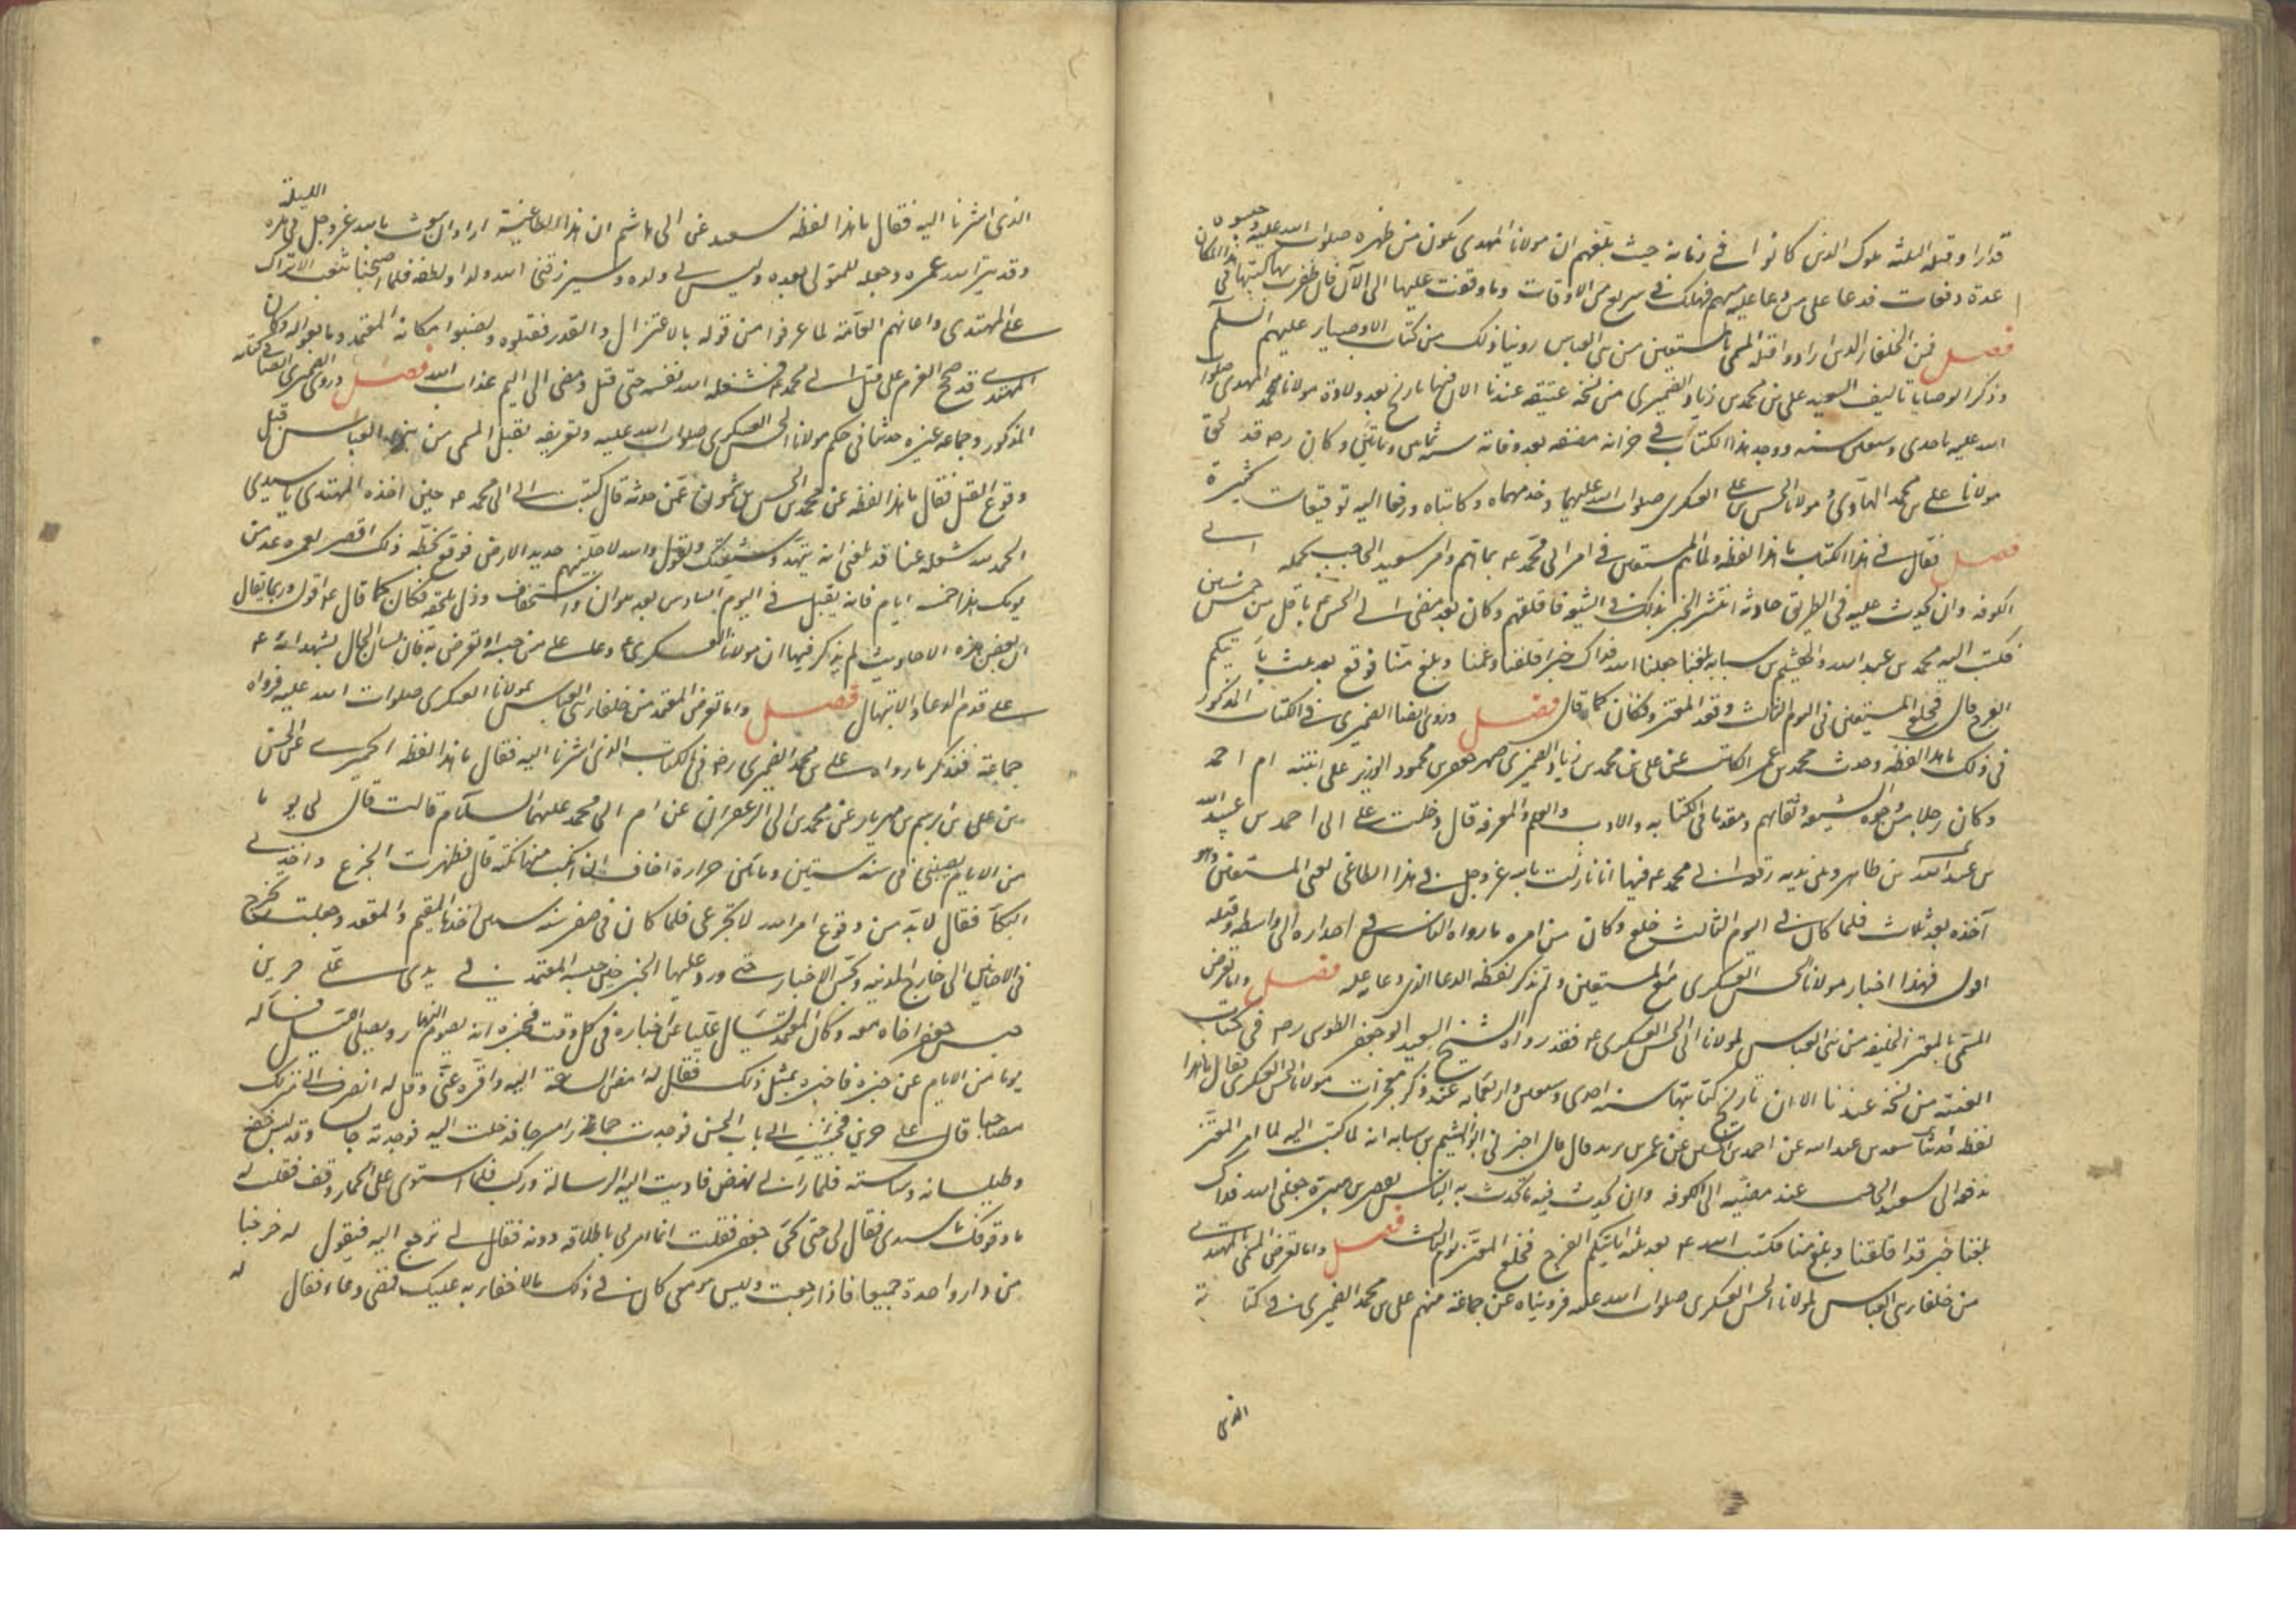 قد ارادوا قتله الثلثة ملوك الذين كانوا في زمانه حيث بلغهم ان مولانا المهدي يكون من ظهره صلوات الله عليه وحبسوه
عدة دفعات فدعا على من دعا عليه منهم فهلك في سريع من الاوقات وما وقفت عليها الى الآن فان ظفرت بها كتبتها في هذا المكان
فصل فمن الخلفاء الذين ارادوا قتله المسمى بالمستعين من بني العباس روينا ذلك من كتاب الاوصياء عليهم السلم
وذكر الوصايا تاليف السعيد على بن محمد بن زياد الصيمري من نسخة عتيقة عندنا الان فيها تاريخ بعد ولادة مولانا محمد المهدي صلوات
الله عليه باحدى وسبعين سنه ووجد هذا الكتاب في خزانة مصنفه بعد وفاته سنة ثمانين ومأتين وكان رضه قد لحق
مولانا على بن محمد الهادي ومولانا الحسن بن على العسكري صلوات الله عليهما وخدمهما وكاتباه ورفعا اليه توقيعات كثيرة
فصل فقال في هذا الكتاب ما هذا لفظه ولما هم المستعين في امر ابي محمد ع بما هم وامر سعيد الحاجب بحمله الى
الكوفه وان يحدث عليه في الطريق حادثة انتشر الخبر بذلك في الشيعه فاقلقهم وكان بعد مضي ابي الحسن ع باقل من خمس سنين
فكتب اليه محمد بن عبد الله والهيثم بن سبابه بلغنا جعلنا الله فداك خبر اقلقنا وغمنا وبلغ منا فوقع بعد ثلث ياتيكم
الفرج قال فخلع المستعين في اليوم الثالث وقعد المعتز وكان كما قال فصل وروى ايضا الصيمري في الكتاب المذكور
في ذلك ما هذا لفظه وحدث محمد بن عمر الكاتب عن على بن محمد بن زياد الصيمري صهر جعفر بن محمود الوزير على ابنته ام احمد
وكان رجلا من وجوه الشيعه وثقاتهم ومقدما في الكتابه والادب والعلم والمعرفه قال دخلت على ابي احمد بن عبيد الله
بن عبد الله بن طاهر وبين يديه رقعة ابي محمد ع فيها انا نازلت بالله عز وجل في هذا الطاغي يعني المستعين وهو
آخذه بعد ثلاث فلما كان في اليوم الثالث خلع وكان من امره ما رواه الناس في احداره الى واسط وقتله
اقول فهذا اخبار مولانا الحسن العسكري مع المستعين ولم نذكر لفظ الدعا الذي دعا عليه فصل واما تعرض
المسمى بالمعتز الخليفه من بني العباس لمولانا ابي الحسن العسكري ع فقد رواه الشيخ السعيد ابو جعفر الطوسي رضه في كتاب
الغيبة من نسخة عندنا الان تاريخ كتابتها سنة احدى وسبعين واربعمائه عند ذكر معجزات مولانا الحسن العسكري فقال ما هذا
لفظه حدثنا سعد بن عبد الله عن احمد بن الحسين عن عمر بن يزيد قال اخبرني ابو الهيثم بن سبابه انه لما كتب اليه لما امر المعتز
بدفعه الى سعيد الحاجب عند مضيه الى الكوفه وان يحدث فيه ما يحدث به الناس بقصر بن هبيرة جعلني الله فداك
بلغنا خبر قد اقلقنا وبلغ منا فكتب اليه ع بعد ثلث ياتيكم الفرج فخلع المعتز يوم الثالث فصل واما تعرض المسمى المهتدي
من خلفاء بني العباس لمولانا الحسن العسكري صلوات الله عليه فرويناه عن جماعة منهم على بن محمد الصيمري في كتابه
الذي
الذي اشرنا اليه فقال ما هذا لفظه سعيد عن ابي هاشم ان هذا الطاغية اراد ان يعبث بالله عز وجل في هذه الليلة
وقد بتر الله عمره وجعله للمتولي بعده وليس لي ولد وسيرزقني الله ولدا ولطفه فلما اصبحنا شغب الاتراك
على المهتدى واعانهم العامة لما عرفوا من قوله بالاعتزال والقدر فقتلوه ونصبوا مكانه المعتمد وبايعوا له وكان
المهتدى قد صحح العزم على قتل ابي محمد ع فشغله الله بنفسه حتى قتل ومضى الى اليم عذاب الله فصل وروى الصيمري ايضا في كتابه
المذكور وجماعه غيره حدثنا في حكم مولانا الحسن العسكري صلوات الله عليه وتعريفه بقتل المسمى من بني العباس قبل
وقوع القتل فقال ما هذا لفظه عن محمد بن الحسن بن شمون عمن حدثه قال كتبت الى ابي محمد ع حين اخذه المهتدى يا سيدى
الحمد لله شغله عنا قد بلغني انه يتهدد شيعتك ويقول والله لاجلينهم جديد الارض فوقع بخطه ذلك اقصر لعمره عد من
يومك هذا خمسة ايام فانه يقتل في اليوم السادس بعد هوان واستخفاف وذل يلحقه فكان كما قال ع اقول وربما يقال
ان بعض هذه الاحاديث لم يذكر فيها ان مولانا العسكري ع دعا على من حبسه او تعرض به فان لسان الحال يشهد انه ع
على قدم الدعا والابتهال فصل واما تعرض المعتمد من خلفاء بني العباس بمولانا العسكري صلوات الله عليه فرواه
جماعة فنذكر ما رواه على بن محمد الصيمري رضه في الكتاب الذي اشرنا اليه فقال ما هذا لفظه الحميرى عن الحسن
بن على بن ابراهيم بن مهريار عن محمد بن ابي الزعفران عن ام ابي محمد عليهما السلام قالت قال لي يوما
من الايام يصيبني في سنة ستين ومأتين حرارة اخاف ان انكب منها نكبة قال فظهرت الجزع واخذني
البكآ فقال لا بد من وقوع امر الله لا تجزعي فلما كان في صفر سنة ستين اخذها المقيم والمقعد وجعلت تخرج
في الاحايين الى خارج المدينه وتجس الاخبار حتى ورد عليها الخبر حين حبسه المعتمد في يدى على حرين
وحبس جعفر اخاه معه وكان المعتمد يسال عليا عن اخباره في كل وقت فيخبره انه يصوم النهار ويصلي الليل فساله
يوما من الايام عن خبره فاخبره بمثل ذلك فقال له امض الساعة اليه واقره عني وقل له انصرف الى منزلك
مصاحبا قال على حرين فجئت الى باب الحبس فوجدت حمارا مسرجا فدخلت اليه فوجدته جالسا وقد لبس خفه
وطيلسانه وشاشته فلما راني نهض فاديت اليه الرسالة وركب فلما استوى على الحمار وقف فقلت له
ما وقوفك يا سيدى فقال لي حتى يجئ جعفر فقلت انما امرني باطلاقه دونه فقال لي ترجع اليه فيقول له خرجنا
من دار واحدة جميعا فاذا رجعت وليس هو معي كان في ذلك ما لا خفاء به عليك فمضى وعاد فقال له